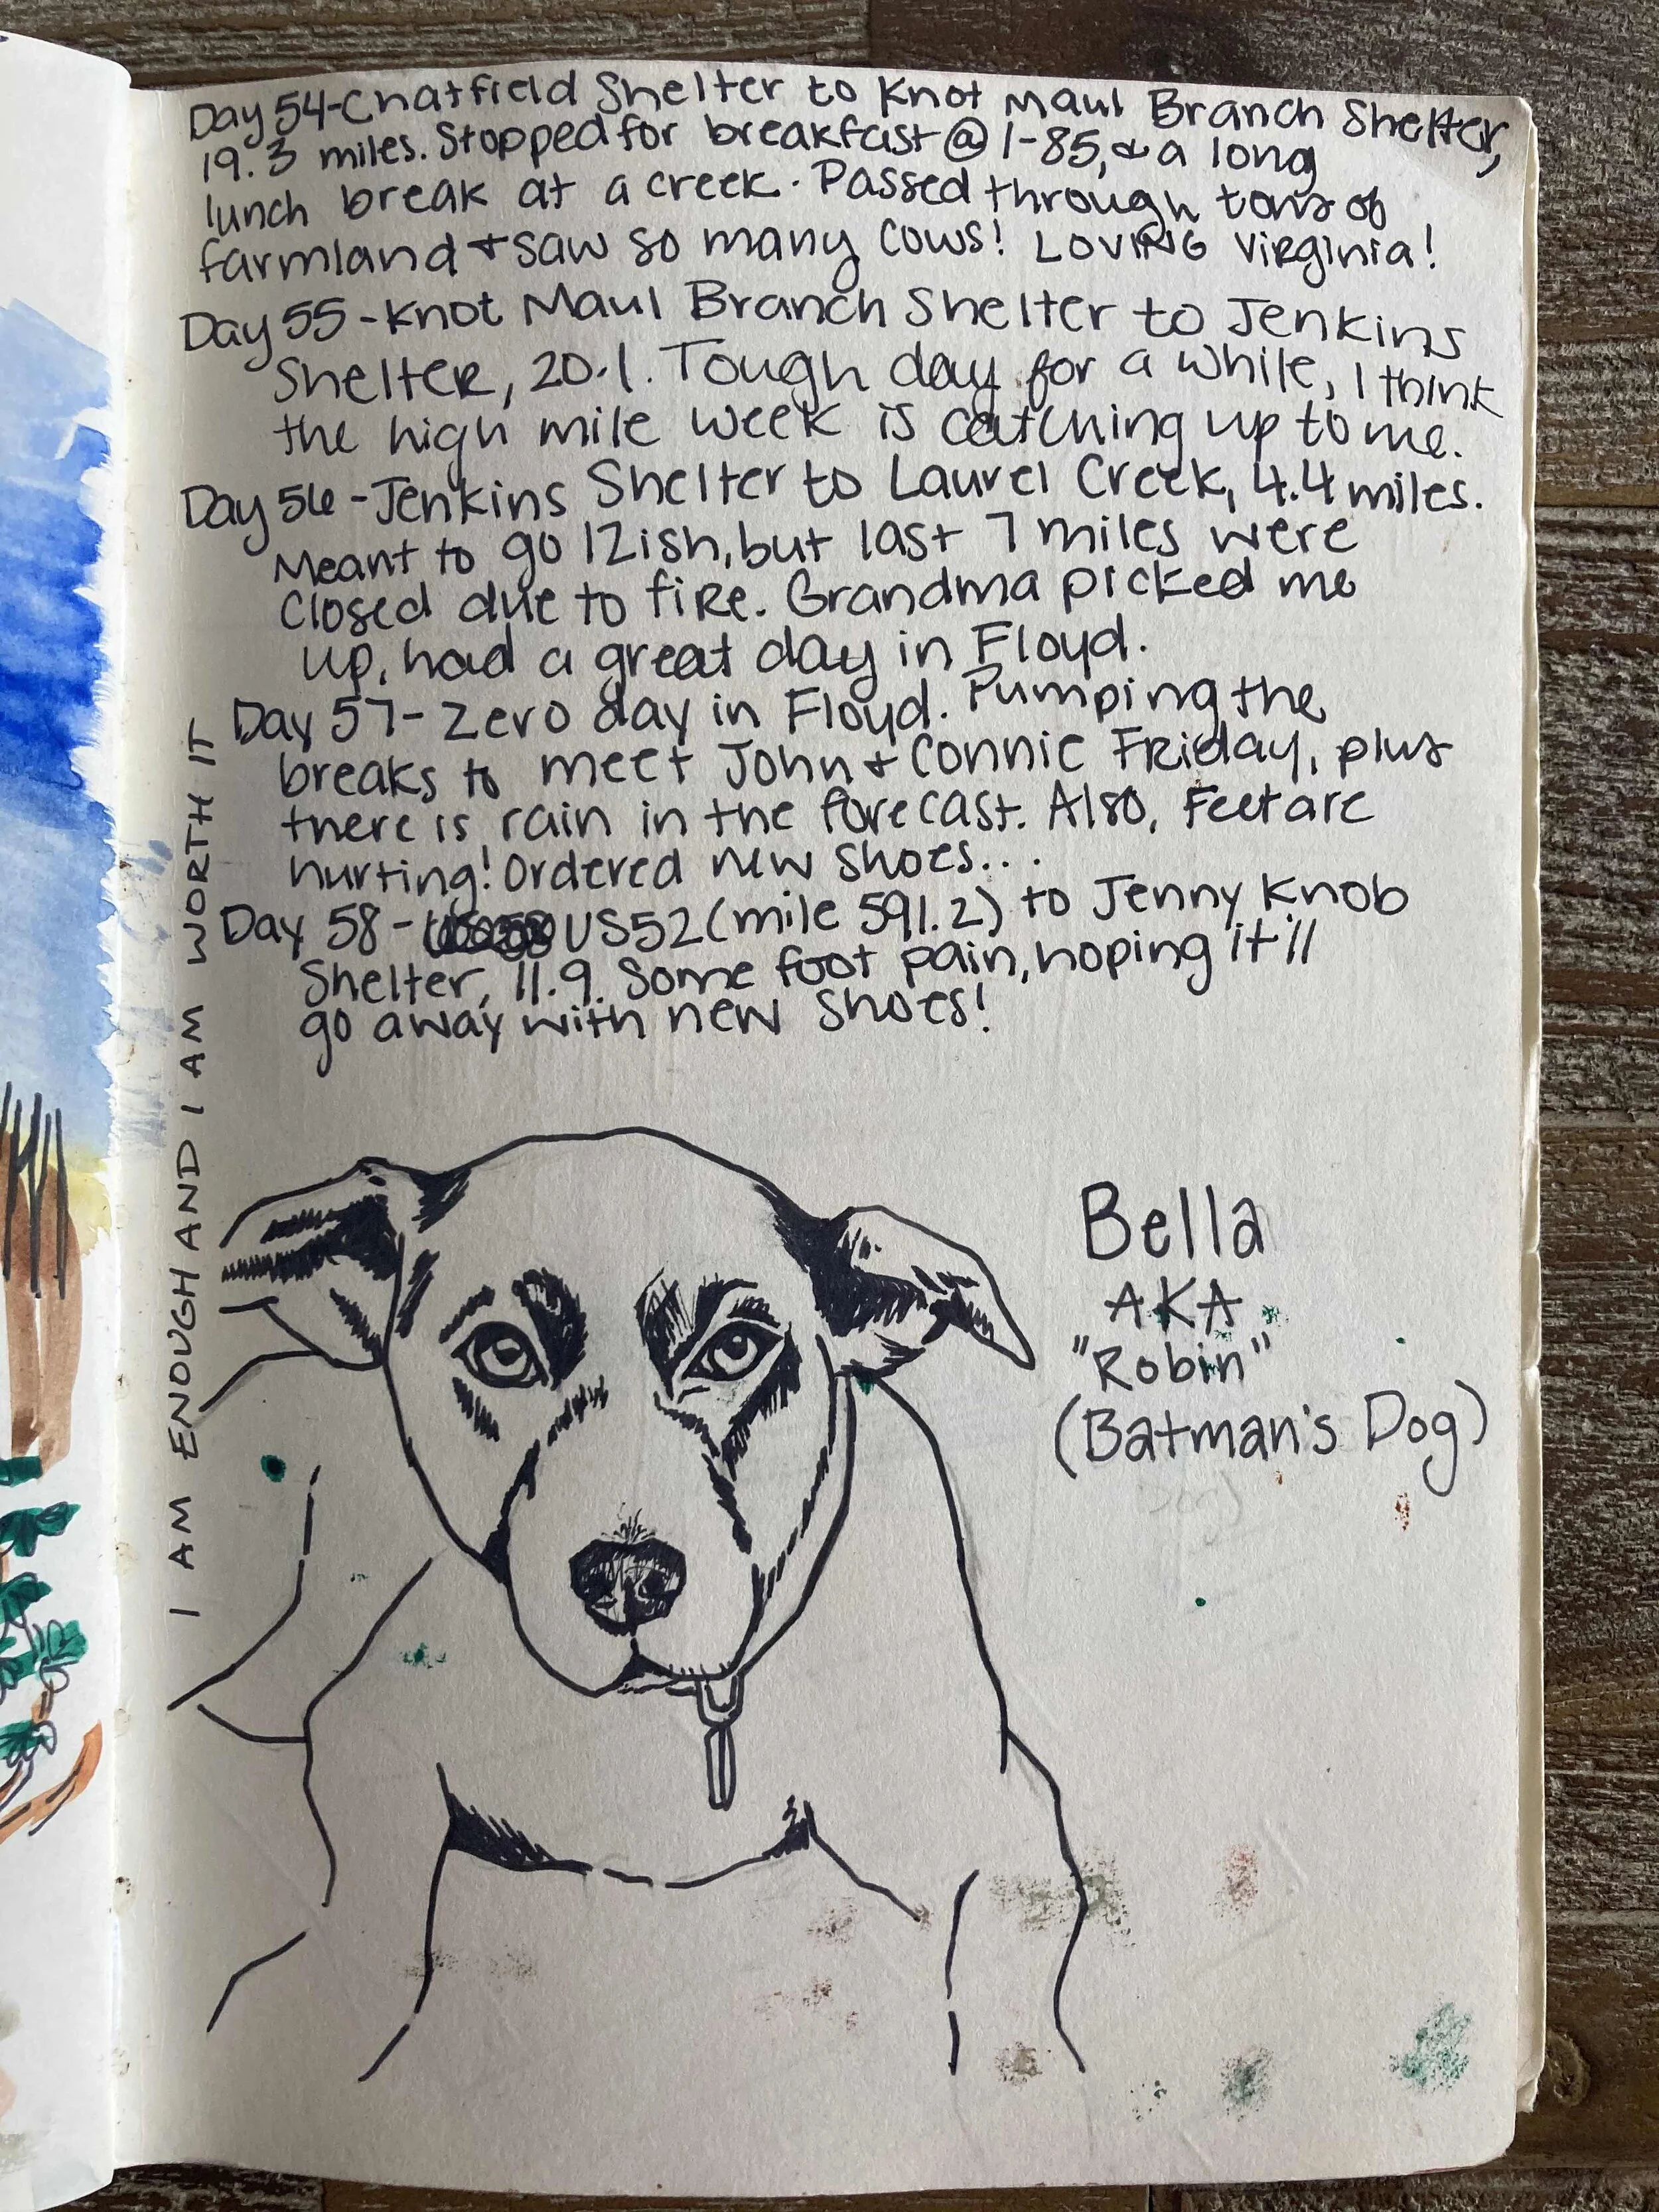 Day 54-Chatfield Shelter to Knot Maul Branch Shelter,
19.3 miles. Stopped for breakfast @ I-85, & a long
lunch break at a creek. Passed through tons of
farmland + saw so many cows! LOVING Virginia!
Day 55-Knot Maul Branch Shelter to Jenkins
Shelter, 20.1. Tough day for a while, I think
the high mile week is catching up to me.
Day 56-Jenkins Shelter to Laurel Creek, 4.4 miles.
Meant to go 12ish, but last 7 miles were
closed due to fire. Grandma picked me
up, had a great day in Floyd.
Day 57- Zero day in Floyd. Pumping the
breaks to meet John + Connie Friday, plus
there is rain in the forecast. Also, feet are
hurting! Ordered new shoes...
Day 58- US52 (mile 591.2) to Jenny Knob
Shelter, 11.9. Some foot pain, hoping it'll
go away with new shoes!
I AM ENOUGH AND I AM WORTH IT
Bella
AKA
"Robin"
(Batman's Dog)